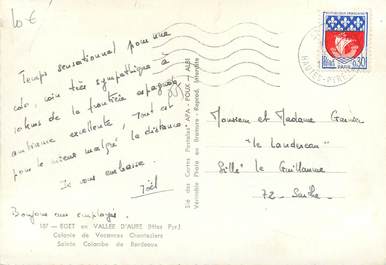 10 €
Temps sensationnel pour une
colo, coin très sympathique à
10kms de la frontière espagnole
ambiance excellente. Tout est
pour le mieux malgré la distance.
Je vous embrasse.
Joël
Bonjour aux employés.
107 - EGET en VALLEE D'AURE (Htes Pyr.)
Colonie de Vacances Chantecler
Sainte Colombe de Bordeaux
Sté des Cartes Postales "APA - POUX - ALBI
Véritable Photo au Bromure - Reprod. Interdite
REPUBLIQUE FRANÇAISE
Postes 0,30
PARIS
HAUTES-PYRENEES
Monsieur et Madame
"le Landreau"
Sillé le Guillaume
72 - Sarthe